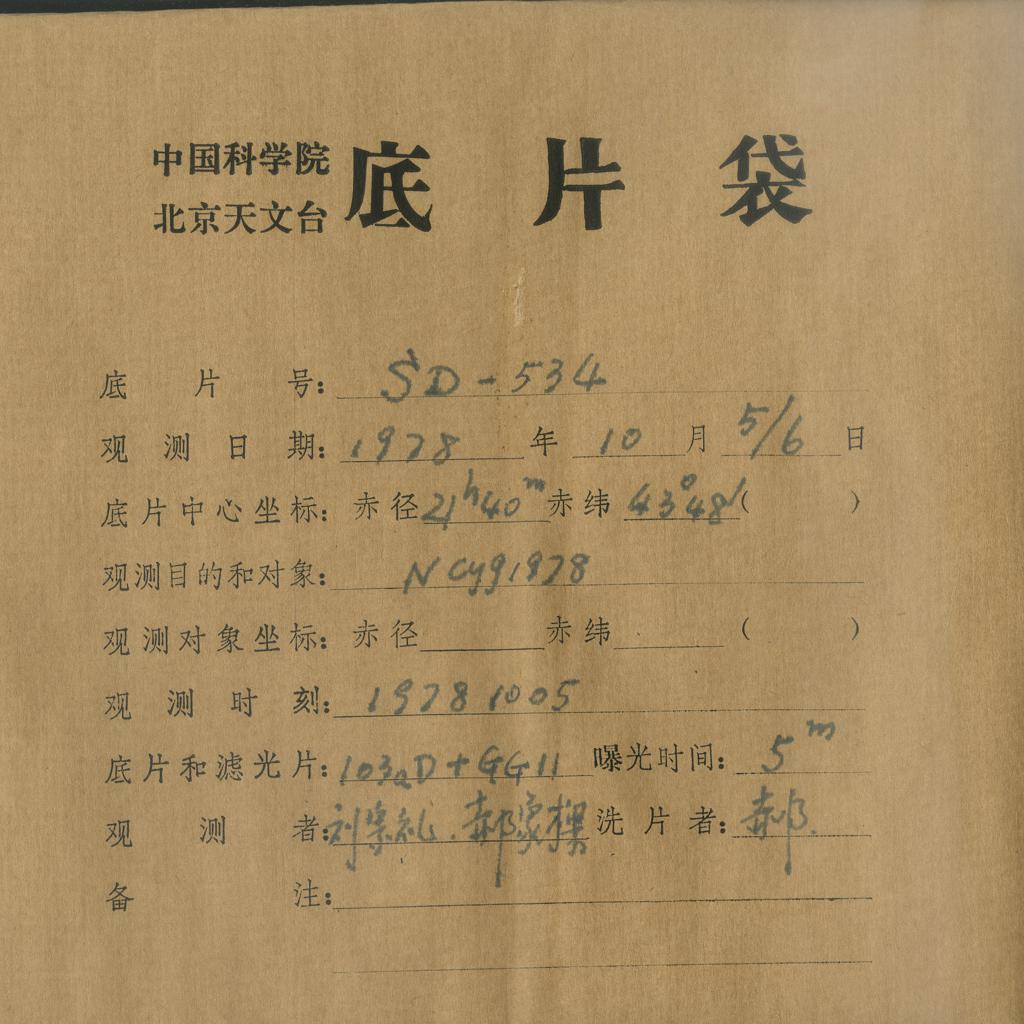 中国科学院
北京天文台
底片袋
底片号: SD-534
观测日期: 1978年10月5/6日
底片中心坐标: 赤径21h40m赤纬43°48′( )
观测目的和对象: N Cyg 1978
观测对象坐标: 赤径 赤纬 ( )
观测时刻: 1978 1005
底片和滤光片: 103aD+GG11 曝光时间: 5m
观测者: 刘宗礼.郝象樑 洗片者: 郝.
备注: